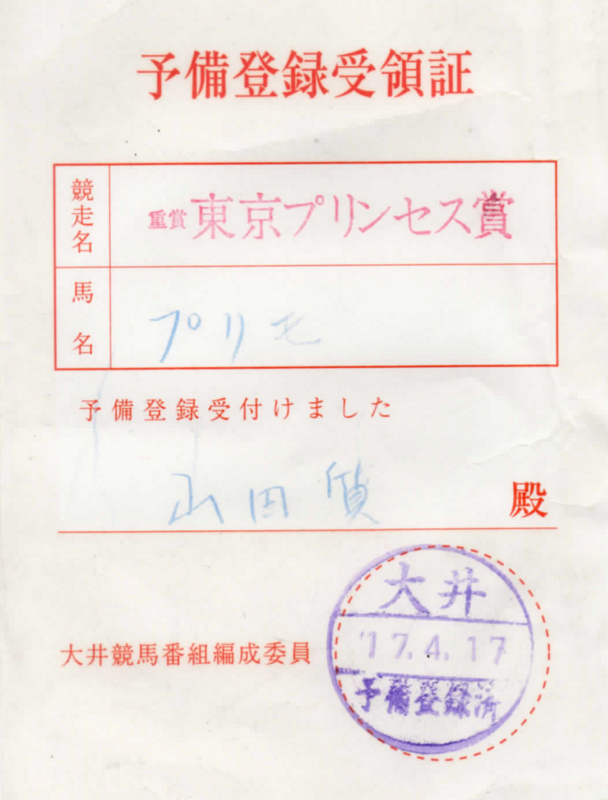 予備登録受領証
競走名 重賞 東京プリンセス賞
馬名 プリモ
予備登録受付けました
山田質 殿
大井
'17.4.17
大井競馬番組編成委員
予備登録済